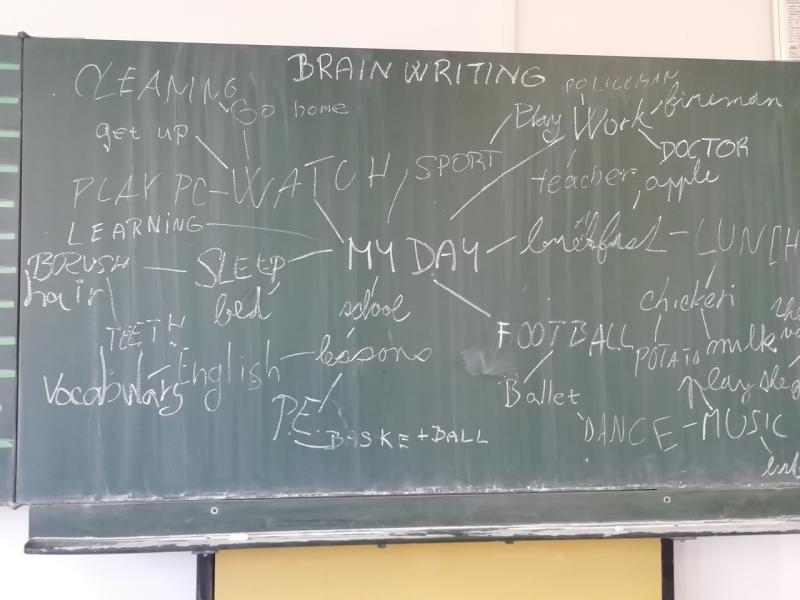 BRAIN WRITING
CLEANING
Go home
get up
POLICEMAN
Play
Work
fireman
DOCTOR
SPORT
teacher
apple
PLAY PC
WATCH
LEARNING
MY DAY
LUNCH
BRUSH
SLEEP
hair
bed
school
chicken
TEETH
FOOTBALL
POTATO
milk
English
lessons
Ballet
play
P.E.
BASKETBALL
DANCE
MUSIC